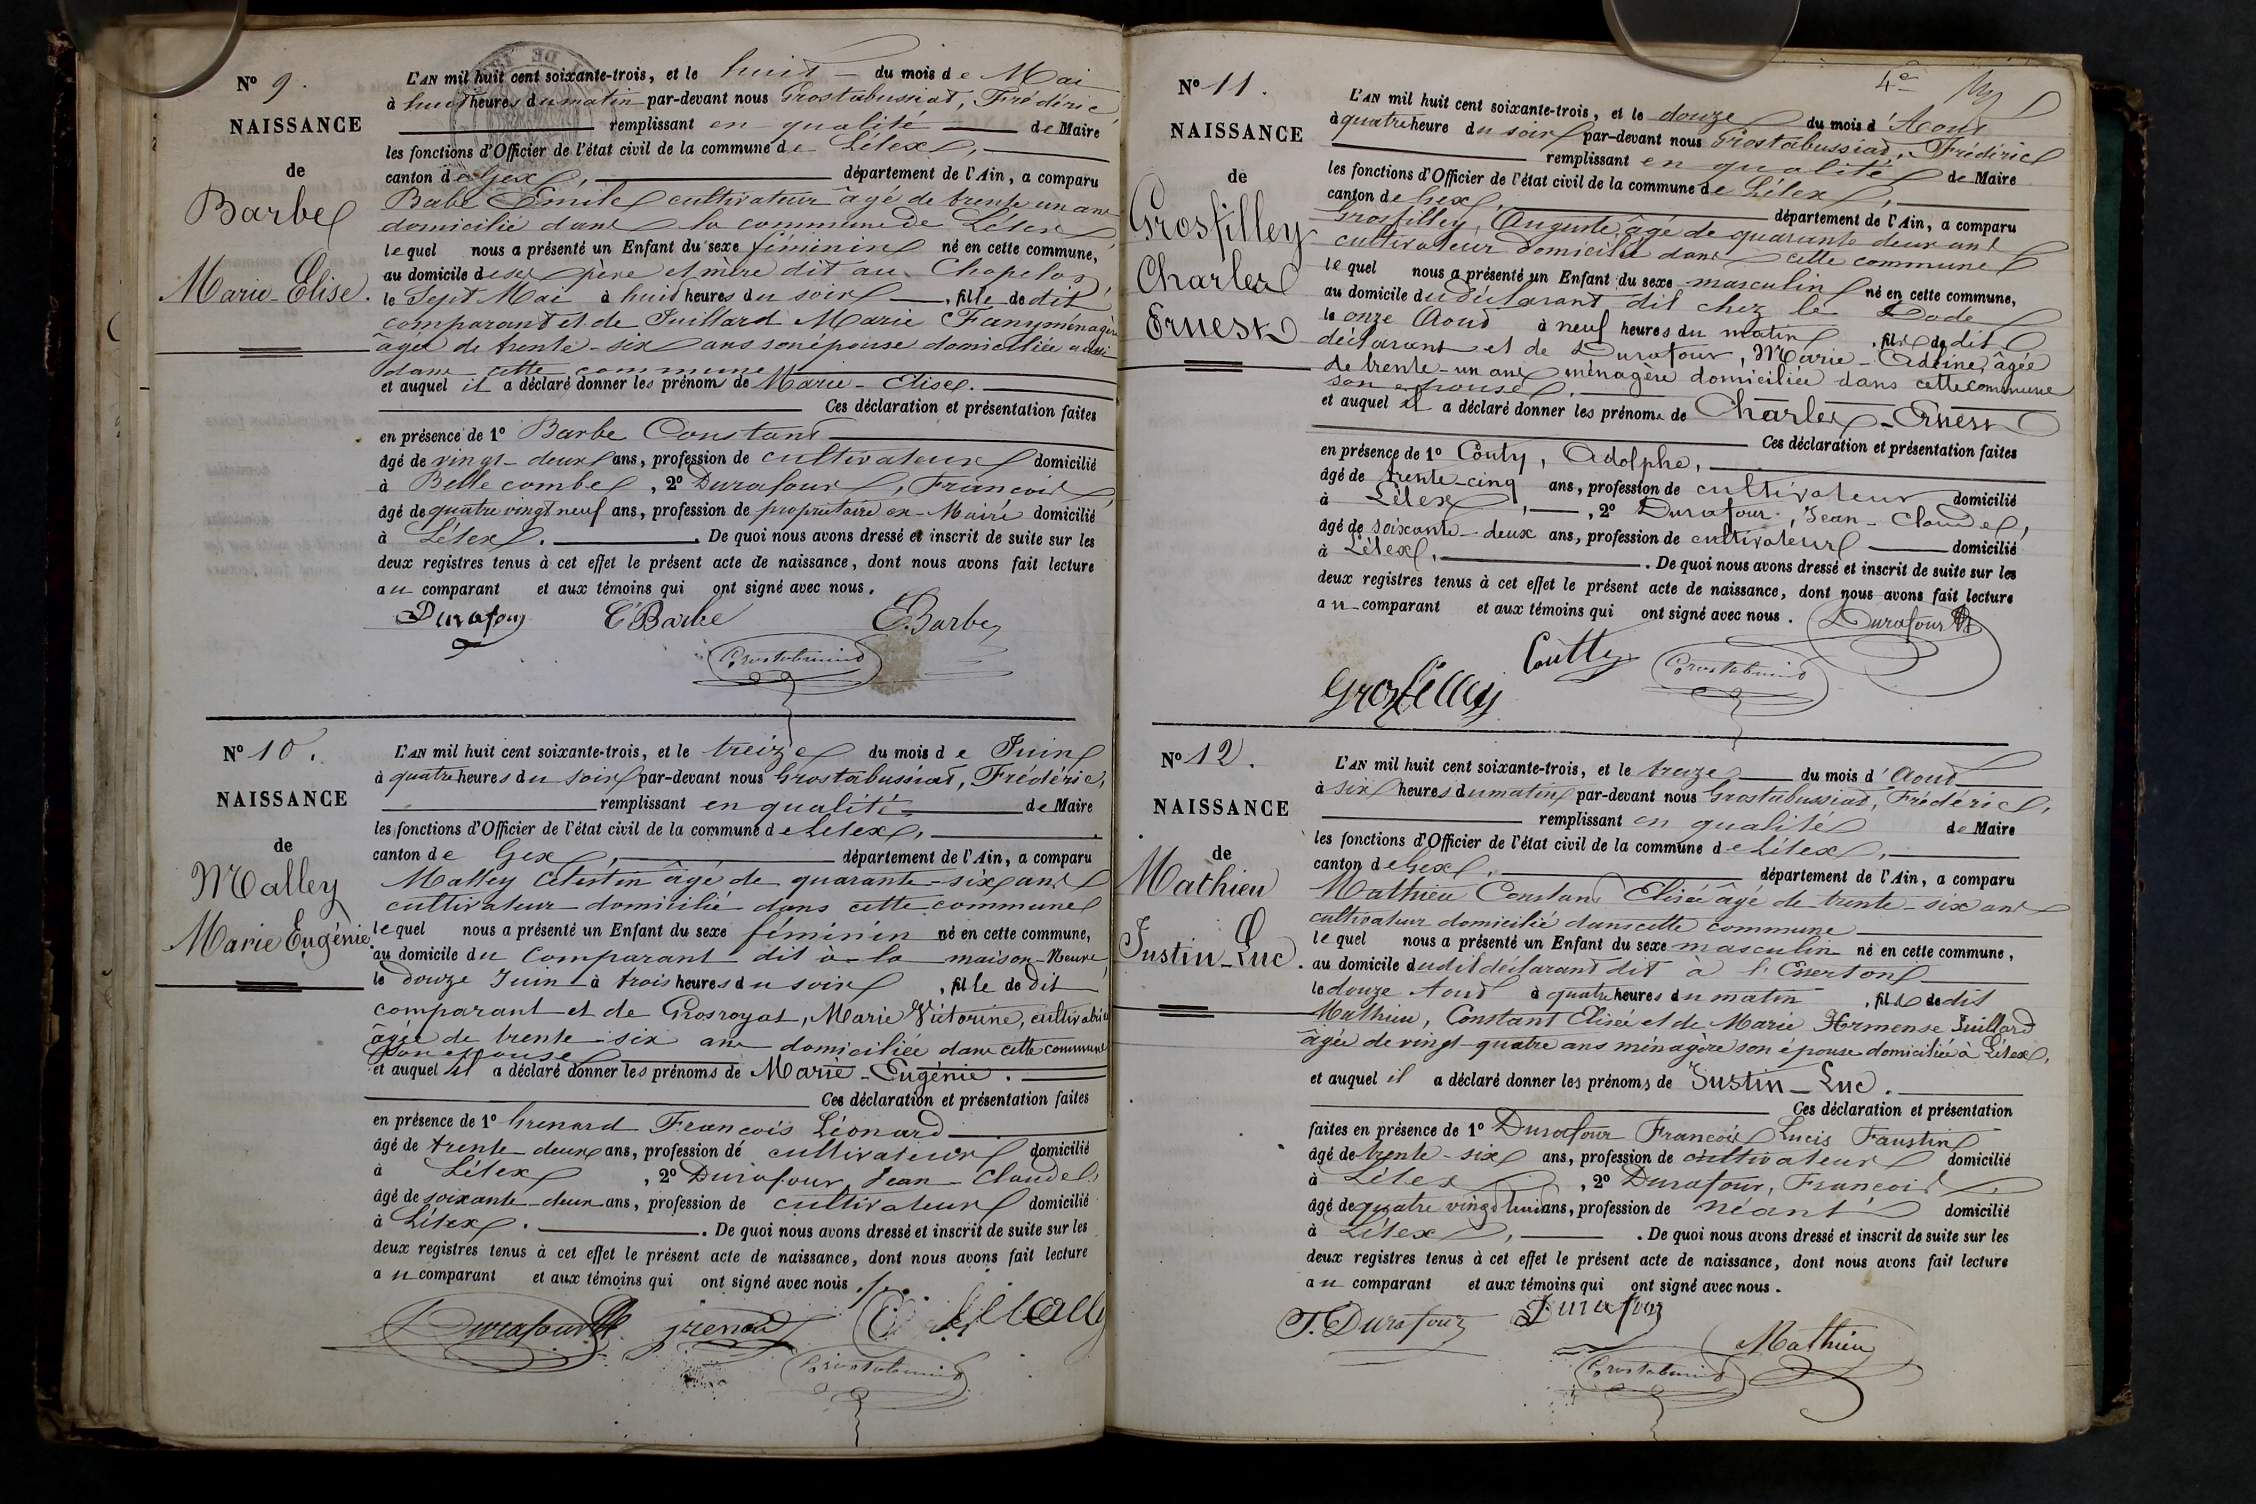 N° 9.
NAISSANCE
de
Barbe
Marie-Elise.
L'AN mil huit cent soixante-trois, et le huit du mois de Mai
à huit heures du matin par-devant nous Grostabussiat, Frédéric
remplissant en qualité de Maire
les fonctions d'Officier de l'état civil de la commune de Lélex,
canton de Gex, département de l'Ain, a comparu
Babe Emile cultivateur âgé de trente un ans
domicilié dans la commune de Lélex
lequel nous a présenté un Enfant du sexe féminin né en cette commune,
au domicile de ses père et mère dit au Chapelos,
le Sept Mai à huit heures du soir, fille de dit
comparant et de Juillard Marie Fany ménagère
âgée de trente-six ans son épouse domiciliée aussi
dans cette commune
et auquel il a déclaré donner les prénoms de Marie-Elise.
Ces déclaration et présentation faites
en présence de 1° Barbe Constant
âgé de vingt-deux ans, profession de cultivateur domicilié
à Belle combe, 2° Durafour, François,
âgé de quatre vingt neuf ans, profession de propriétaire ex-Maire domicilié
à Lélex. De quoi nous avons dressé et inscrit de suite sur les
deux registres tenus à cet effet le présent acte de naissance, dont nous avons fait lecture
au comparant et aux témoins qui ont signé avec nous.
Durafour C Barbe E. Barbe
Grostabussiat
N° 10.
NAISSANCE
de
Malley
Marie Eugénie.
L'AN mil huit cent soixante-trois, et le treize du mois de Juin
à quatre heures du soir par-devant nous Grostabussiat, Frédéric,
remplissant en qualité de Maire
les fonctions d'Officier de l'état civil de la commune de Lélex,
canton de Gex, département de l'Ain, a comparu
Malley Célestin âgé de quarante-six ans
cultivateur domicilié dans cette commune
lequel nous a présenté un Enfant du sexe féminin né en cette commune,
au domicile du Comparant dit à la maison-Neuve,
le douze Juin à trois heures du soir, fille de dit
comparant et de Grosroyat, Marie Victorine, cultivatrice
âgée de trente-six ans domiciliée dans cette commune
son épouse
et auquel il a déclaré donner les prénoms de Marie-Eugénie.
Ces déclaration et présentation faites
en présence de 1° Grenard François Léonard
âgé de trente-deux ans, profession de cultivateur domicilié
à Lélex, 2° Durafour, Jean-Claude,
âgé de soixante-deux ans, profession de cultivateur domicilié
à Lélex. De quoi nous avons dressé et inscrit de suite sur les
deux registres tenus à cet effet le présent acte de naissance, dont nous avons fait lecture
au comparant et aux témoins qui ont signé avec nous.
Durafour grenard
Grostabussiat
4e
N° 11.
NAISSANCE
de
Grosfilley
Charles
Ernest
L'AN mil huit cent soixante-trois, et le douze du mois d'Aout
à quatre heure du soir par-devant nous Grostabussiat, Frédéric
remplissant en qualité de Maire
les fonctions d'Officier de l'état civil de la commune de Lélex,
canton de Gex, département de l'Ain, a comparu
Grosfilley, Auguste, âgé de quarante deux ans
cultivateur domicilié dans cette commune
lequel nous a présenté un Enfant du sexe masculin né en cette commune,
au domicile du déclarant dit chez le Dode
le onze Aout à neuf heures du matin, fils de dit
déclarant et de Durafour, Marie-Adeine, âgée
de trente-un ans ménagère domiciliée dans cette commune
son epouse.
et auquel il a déclaré donner les prénoms de Charles-Ernest
Ces déclaration et présentation faites
en présence de 1° Couty, Adolphe,
âgé de trente-cinq ans, profession de cultivateur domicilié
à Lélex, 2° Durafour, Jean-Claude,
âgé de soixante-deux ans, profession de cultivateur domicilié
à Lélex, . De quoi nous avons dressé et inscrit de suite sur les
deux registres tenus à cet effet le présent acte de naissance, dont nous avons fait lecture
au comparant et aux témoins qui ont signé avec nous. Durafour
Coutty Grostabussiat
Grosfilley
N° 12.
NAISSANCE
de
Mathieu
Justin-Luc.
L'AN mil huit cent soixante-trois, et le treize du mois d'Aout
à six heures du matin par-devant nous Grostabussiat, Frédéric,
remplissant en qualité de Maire
les fonctions d'Officier de l'état civil de la commune de Lélex,
canton de Gex, département de l'Ain, a comparu
Mathieu Constant Elisée âgé de trente-six ans
cultivateur domicilié dans cette commune
lequel nous a présenté un Enfant du sexe masculin né en cette commune,
au domicile dudit déclarant dit à l'Enerton
le douze Aout à quatre heures du matin, fils de dit
Mathieu, Constant Elisée et de Marie Hermense Juillard
âgée de vingt-quatre ans ménagère son épouse domiciliée à Lélex,
et auquel il a déclaré donner les prénoms de Justin-Luc.
Ces déclaration et présentation
faites en présence de 1° Durafour François Lucis Faustin
âgé de trente-six ans, profession de cultivateur domicilié
à Lélex, 2° Durafour, François,
âgé de quatre vingt huit ans, profession de néant domicilié
à Lélex, . De quoi nous avons dressé et inscrit de suite sur les
deux registres tenus à cet effet le présent acte de naissance, dont nous avons fait lecture
au comparant et aux témoins qui ont signé avec nous.
F. Durafour Durafour
Mathieu
Grostabussiat